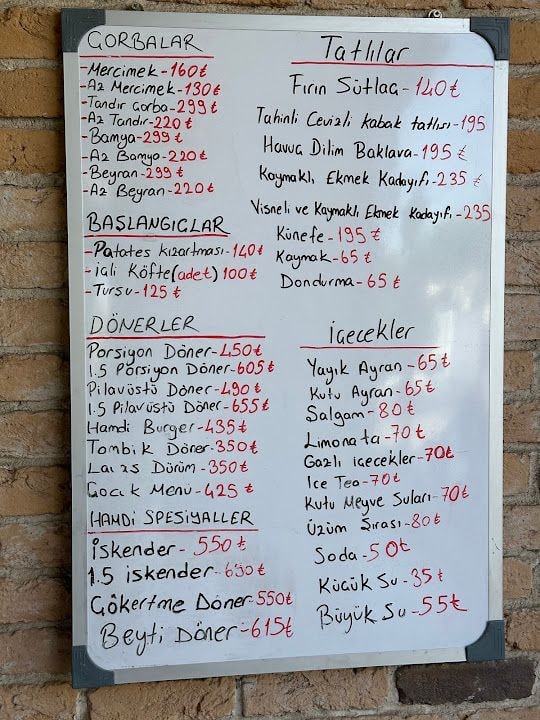 ÇORBALAR
-Mercimek-160₺
-Az Mercimek-130₺
-Tandır Çorba-299₺
-Az Tandır-220₺
-Bamya-299₺
-Az Bamya-220₺
-Beyran-299₺
-Az Beyran-220₺
BAŞLANGIÇLAR
-Patates Kızartması-140₺
-içli Köfte(adet) 100₺
-Turşu-125₺
DÖNERLER
Porsiyon Döner-450₺
1.5 Porsiyon Döner-605₺
Pilavüstü Döner-490₺
1.5 Pilavüstü Döner-655₺
Hamdi Burger-435₺
Tombik Döner-350₺
Lavaş Dürüm-350₺
Çocuk Menü-425₺
HAMDİ SPESİYALLER
İskender-550₺
1.5 iskender-690₺
Çökertme Döner-550₺
Beyti Döner-615₺
Tatlılar
Fırın Sütlaç-140₺
Tahinli Cevizli kabak tatlısı-195
Havuç Dilim Baklava-195₺
Kaymaklı Ekmek Kadayıfı-235₺
Vişneli ve Kaymaklı Ekmek Kadayıfı-235
Künefe-195₺
Kaymak-65₺
Dondurma-65₺
İçecekler
Yayık Ayran-65₺
Kutu Ayran-65₺
Şalgam-80₺
Limonata-70₺
Gazlı içecekler-70₺
Ice Tea-70₺
Kutu Meyve Suları-70₺
Üzüm Şırası-80₺
Soda-50₺
Küçük Su-35₺
Büyük Su-55₺